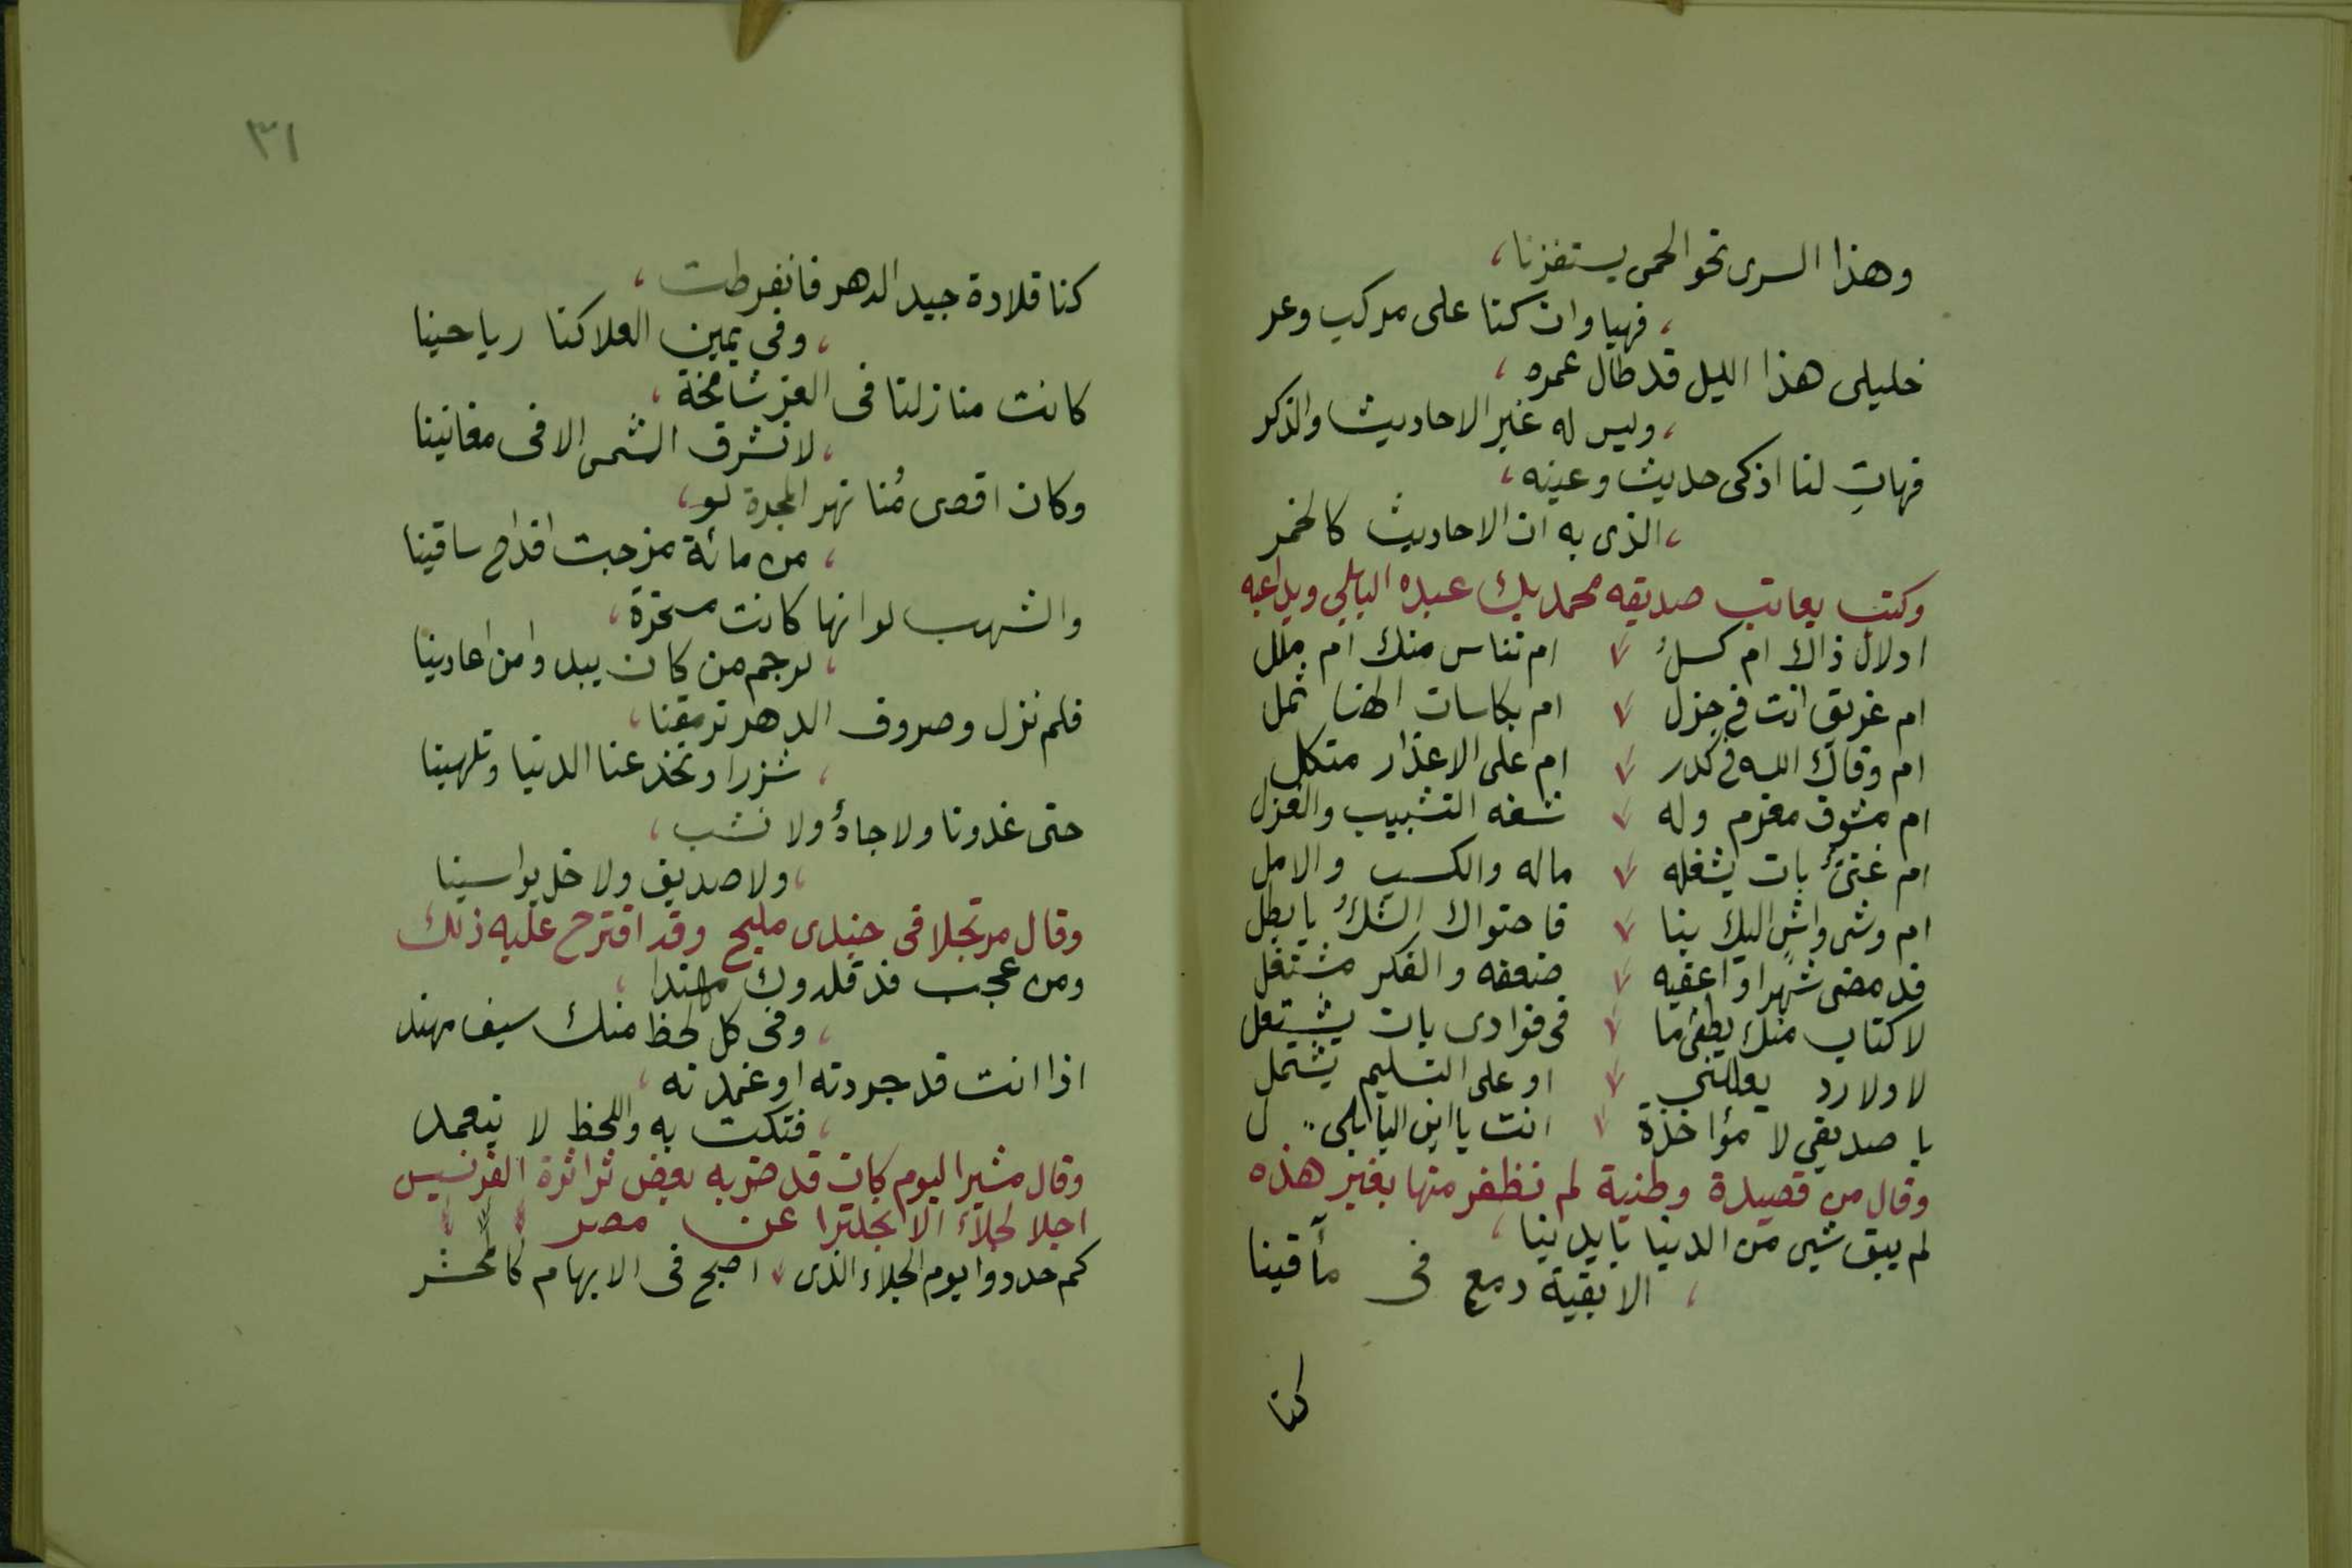 وهذا السرى نحو الحمى يستفزنا،
، فهيا وان كنا على مركب وعر
خليلى هذا الليل قد طال عمره ،
، وليس له غير الاحاديث والذكر
فهاتِ لنا اذكى حديث وعيته ،
، الذى به ان الاحاديث كالخمر
وكتب يعاتب صديقه محمد بك عبده البابلي ويداعبه
ادلال ذاك ام كسلُ ام تناس منك ام ملل
ام غريق انت فى جزل ام بكاسات الهنا ثمل
ام وقاك الله فى كدر ام على الاعذار متكل
ام مشوق مغرم وله شفه التشبيب والغزل
ام غنىٌ بات يشغله ماله والكسب والامل
ام وشى واشٍ اليك بنا فاحتواك الشكُ يا بطل
قد مضى شهرا واعقبه ضعفه والفكر مشتغل
لا كتاب منك يطفئ ما فى فؤادى بات يشتعل
لا ولا رد يعللنى او على التسليم يشتمل
يا صديقى لا مؤاخذة انت يا ابن البابلى .. ل
وقال من قصيدة وطنية لم نظفر منها بغير هذه
لم يبق شيئ من الدنيا بايدينا ،
، الا بقية دمع فى مآقينا
كنا
٣١
كنا قلادة جيد الدهر فانفرطت ،
، وفى يمين العلا كنا رياحينا
كانت منازلنا فى العز شامخة ،
، لا تشرق الشمس الا فى مغانينا
وكان اقصى مُنا نهر المجرة لو ،
، من مائة مزجت اقداح ساقينا
والشهب لو انها كانت مسخرة ،
، لرجم من كان يبدو امن اعادينا
فلم نزل وصروف الدهر ترمقنا ،
، شزرا وتخدعنا الدنيا وتلهينا
حتى غدونا ولا جاهٌ ولا نشب ،
، ولا صديق ولا خل يواسينا
وقال مرتجلا فى جندى مليح وقد اقترح عليه ذلك
ومن عجب قد قلدوك مهندا ،
، وفى كل لحظ منك سيف مهند
اذا انت قد جردته او غمدته ،
، فتكت به واللحظ لا يتعمد
وقال مشيرا ليوم كان قد ضربه بعض ثراثرة الفرنسيس
اجلا لجلاء الانجلترا عن مصر
كم حددوا يوم الجلاء الذى اصبح فى الابهام كالمحشر